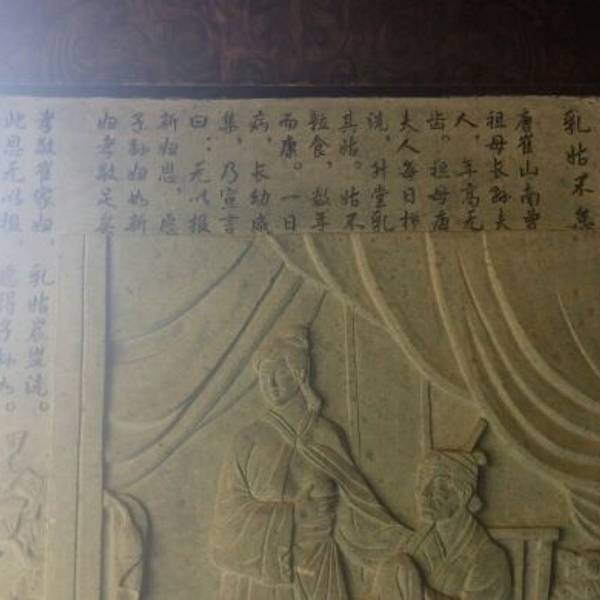 乳姑不怠
唐崔山南曾
祖母长孙夫
人，年高无
齿。祖母唐
夫人每日栉
洗，升堂乳
其姑。姑不
粒食，数年
而康。一日
病，长幼咸
集，乃宣言
曰：无以报
新妇恩，愿
子孙妇如新
妇孝敬足矣
孝敬崔家妇，乳姑晨盥洗。
此恩无以报，愿得子孙如。